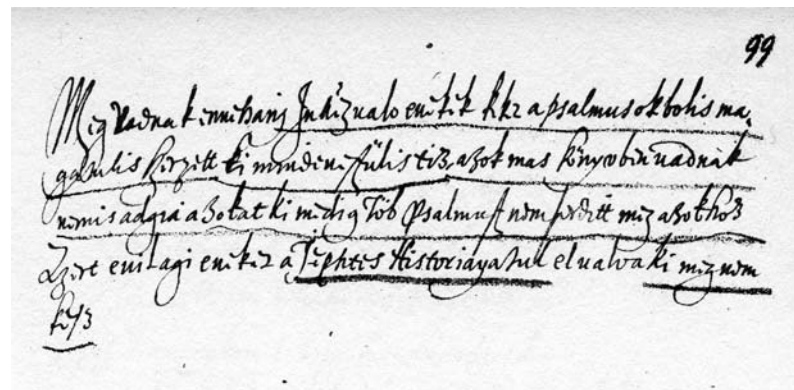 99
Meg vadnak ennehani Isteni ualo enekek kkr a psalmusokbolis ma,
gatulis szerzett ki mindenestülis tiz, azok mas könyvben vadnak
nemis adgia azokat ki medig Töb Psalmust nem szerzett meg azokhoz
Ezert euilagi eneker a Jephtes Historiayatul el ualva ki meg nem
kesz